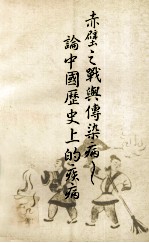 赤壁之戰與傳染病〜
論中國歷史上的疾病